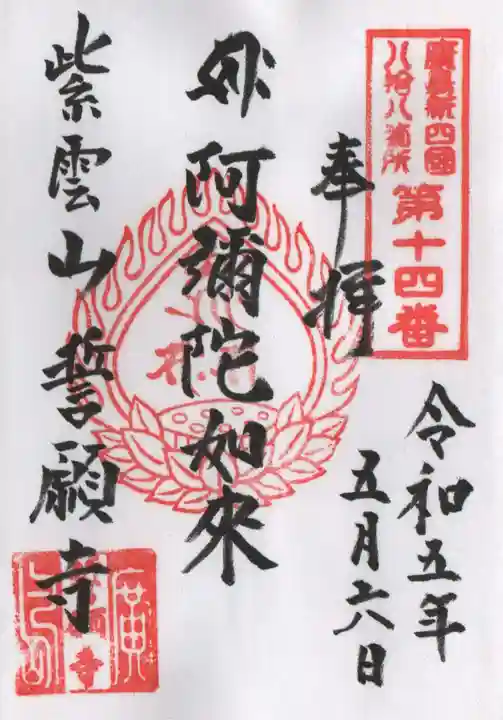 廣島新四國
八拾八箇所
第十四番
奉拝
令和五年
五月六日
阿彌陀如來
紫雲山誓願寺
廣
寺